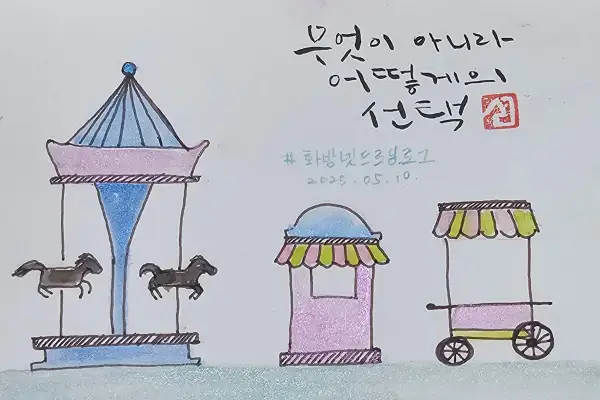 무엇이 아니라
어떻게의
선택
섭
#화방넷드로잉로그
2025.05.10.